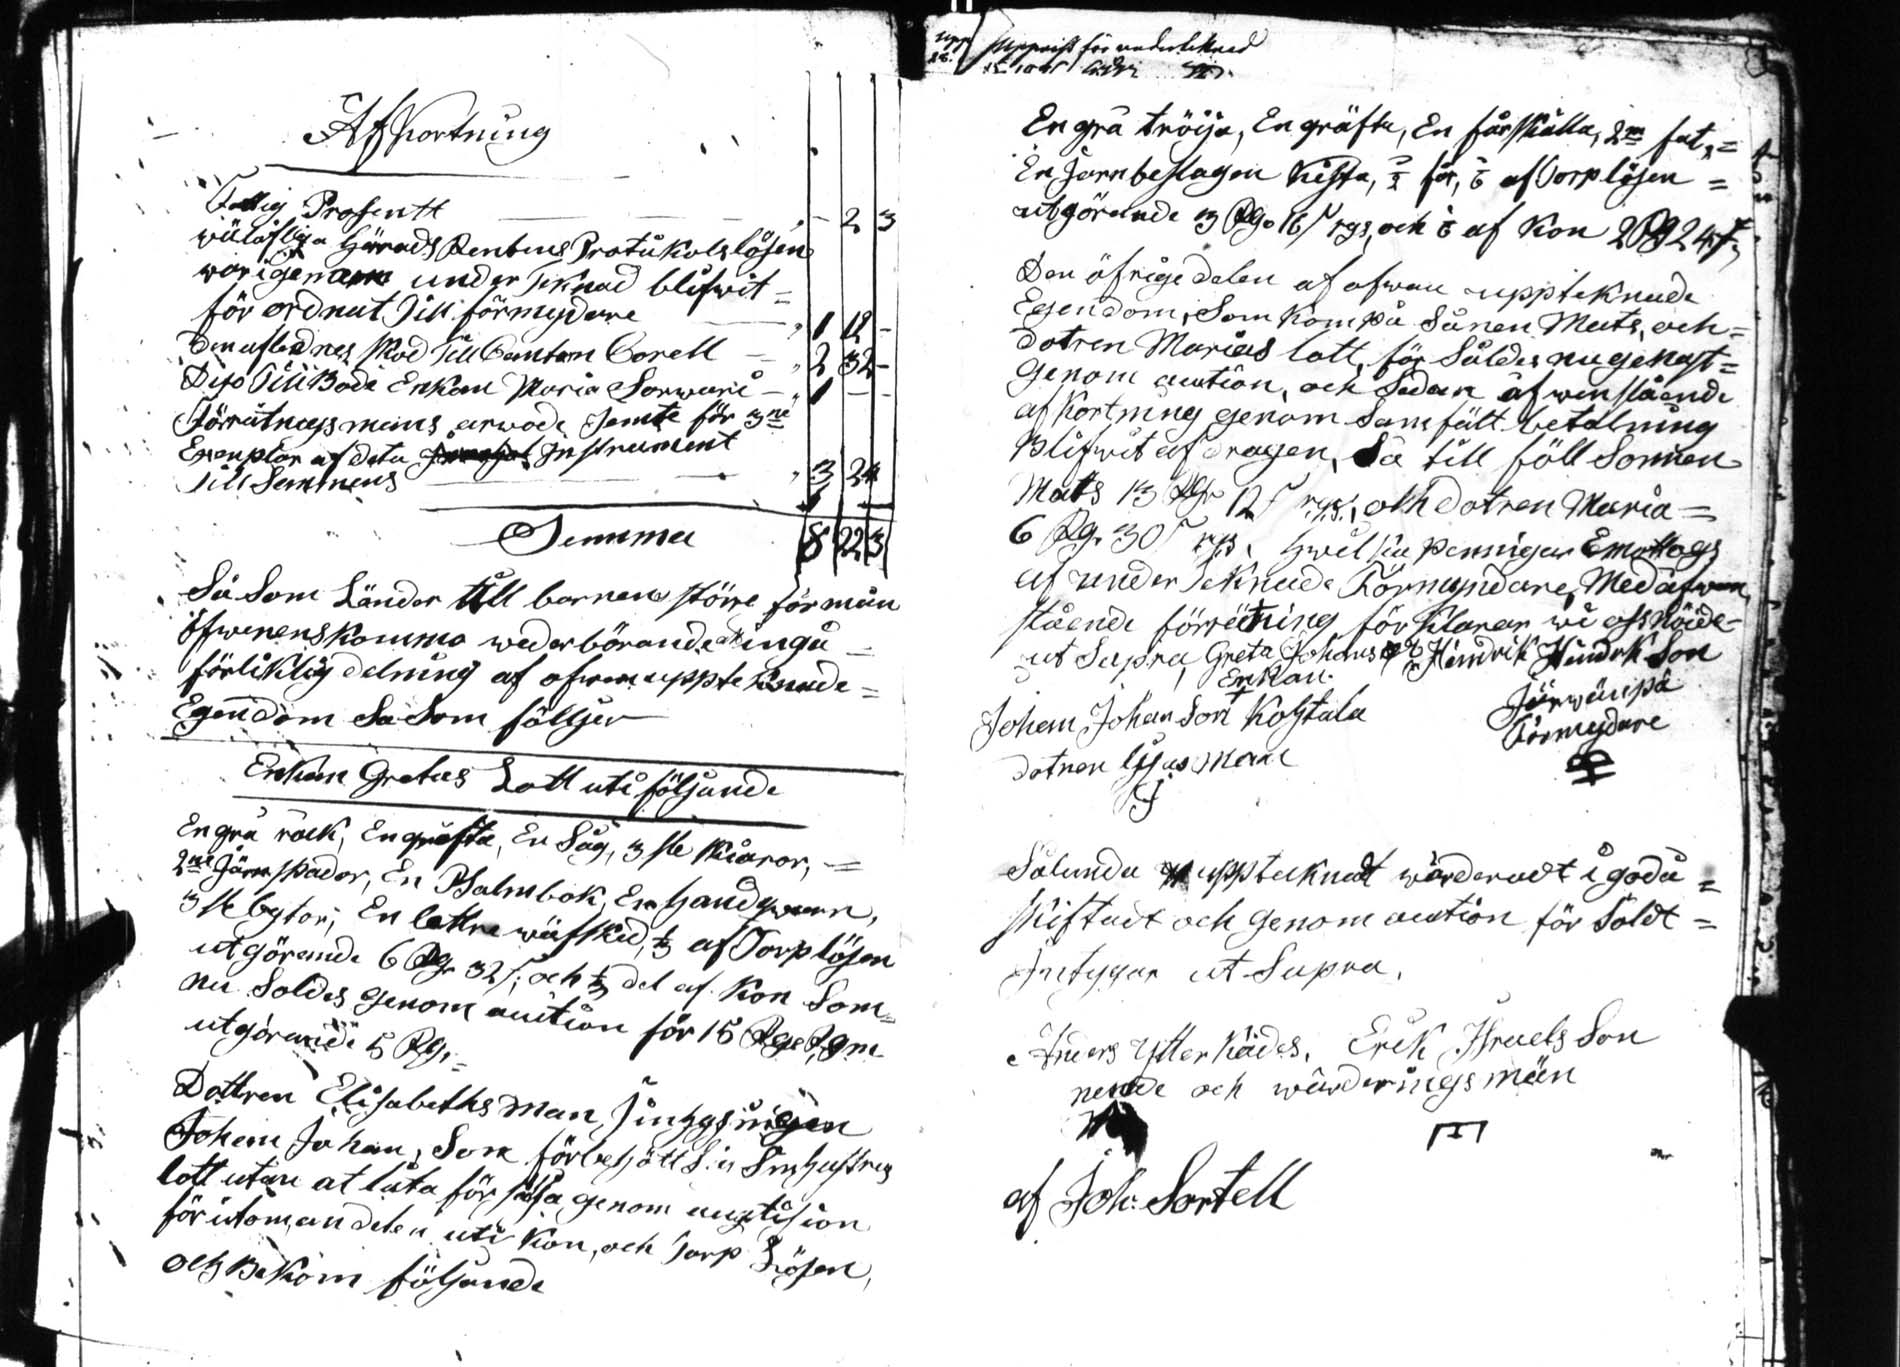 Afkortning
Fattig Prosentt - 2 3
wälofliga Härads Rentens Protukols lösen
warigenom under teknad blifwit =
för ordnat Till förmydare " 1 12 -
den aflednes skod till Cantorn Corell - " 2 32 -
Dito Till Bode Enkan Maria Sorwari - " 1 - -
Förrätnngs mans arwode Jemte för 3ne
Exenplar af deta Instrument
Till Semmens " 3 24
Summa 8 22 3
Så Som Länder till barnens större förmån
öfwerenskomma wederbörande att ingå =
förliklig delning af ofwan uppteknade =
Egendom Så Som följer
Enkan Gretas Lott uti följande
En grå rock, En gräfta, En Såg, 3 ste skiäror, =
2ne Järn spador, En Psalmbok, En handqwarn,
3 ste bytor, En lettre wäfsked, 1/3 af Torp lösen
utgörande 6 Rg. 32 s; och 1/3 del af kon Som =
nu Soldes genom auction för 15 Rg Rgm
utgörande 5 Rg. =
Dottren Elisabeths man
Johan Johan, Som förbehölt Sin hustrus
lott utan at låta försälja genom auction
för utom andelen uti Kon, och Torp Lösen,
och Bekom följande
uppvist för underteknad
En grå tröija, En gräfta, En fårskälla, 2ne fat, =
En Jarnbeslagen kista, 1/6 af Torp lösen =
utgörande 3 Rg. 16 s rgs, och 1/6 af Kon 2 Rg 24 s
Den öfrige delen af ofwan uppteknade
Egendom, Som kom på Sånen Mats, och =
dotren Marias lott, för Såldes nu genast =
genom auction, och Sedan åfwenstående
afkortning genom Samfält betalning
Blifwit afdragen, Så till föll Sonnen
Mats 13 Rg. 12 s rgs, och dotren Maria =
6 Rg. 30 s rgs, Hwilka penningar Emottogs
af under teknade Förmyndare, Med åfwan
stående förrätning förklarar wi oss nöide -
ut Supra, Greta Johans Hindrik Hindrkson
Enkan Järwänpä
Johan Johan Son Kohtala Förmydare
dotren Lisas Man
Sålunda upptecknat wärderadt i goda =
skiftadt och genom auction för Soldt =
Intygar ut Supra.
Anders Ytter Kådes. Erik Israels Son
nende och wärderings män
af Joh. Sortell